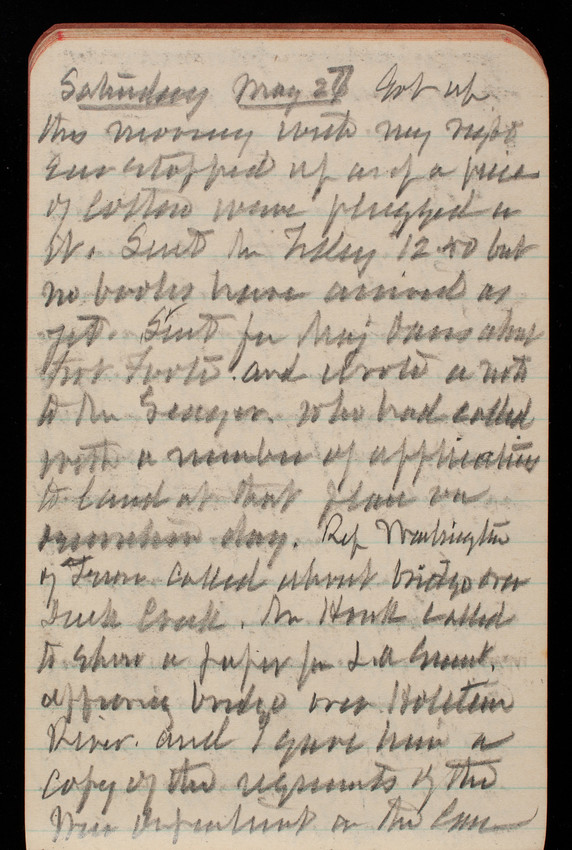 Saturday May 27 Got up
this morning with my right
Ear stopped up as if a piece
of Cotton were plugged in
it. Sent Mr Tilley 12.50 but
no books have arrived as
yet. Sent for Maj Davis about
Fort Foote and wrote a note
to Mr Senger. who had called
with a number of applications
to land at that place on
decoration day. Rep Washington
of Tenn. called about bridge over
Duck Creek. Mr Houk called
to show a paper for
approving bridge over Holston
River. and I gave him a
copy of the requirements of the
War Department in the Case